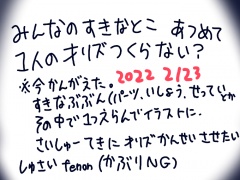 みんなのすきなとこ あつめて
1人のオリズつくらない?
※今かんがえた。2022 2/23
すきなぶぶん(パーツ、いしょう、せっていとか
その中で1つえらんでイラストに.
さいしゅーてきに オリズかんせいさせたい
しゅさい fenon (かぶりNG)